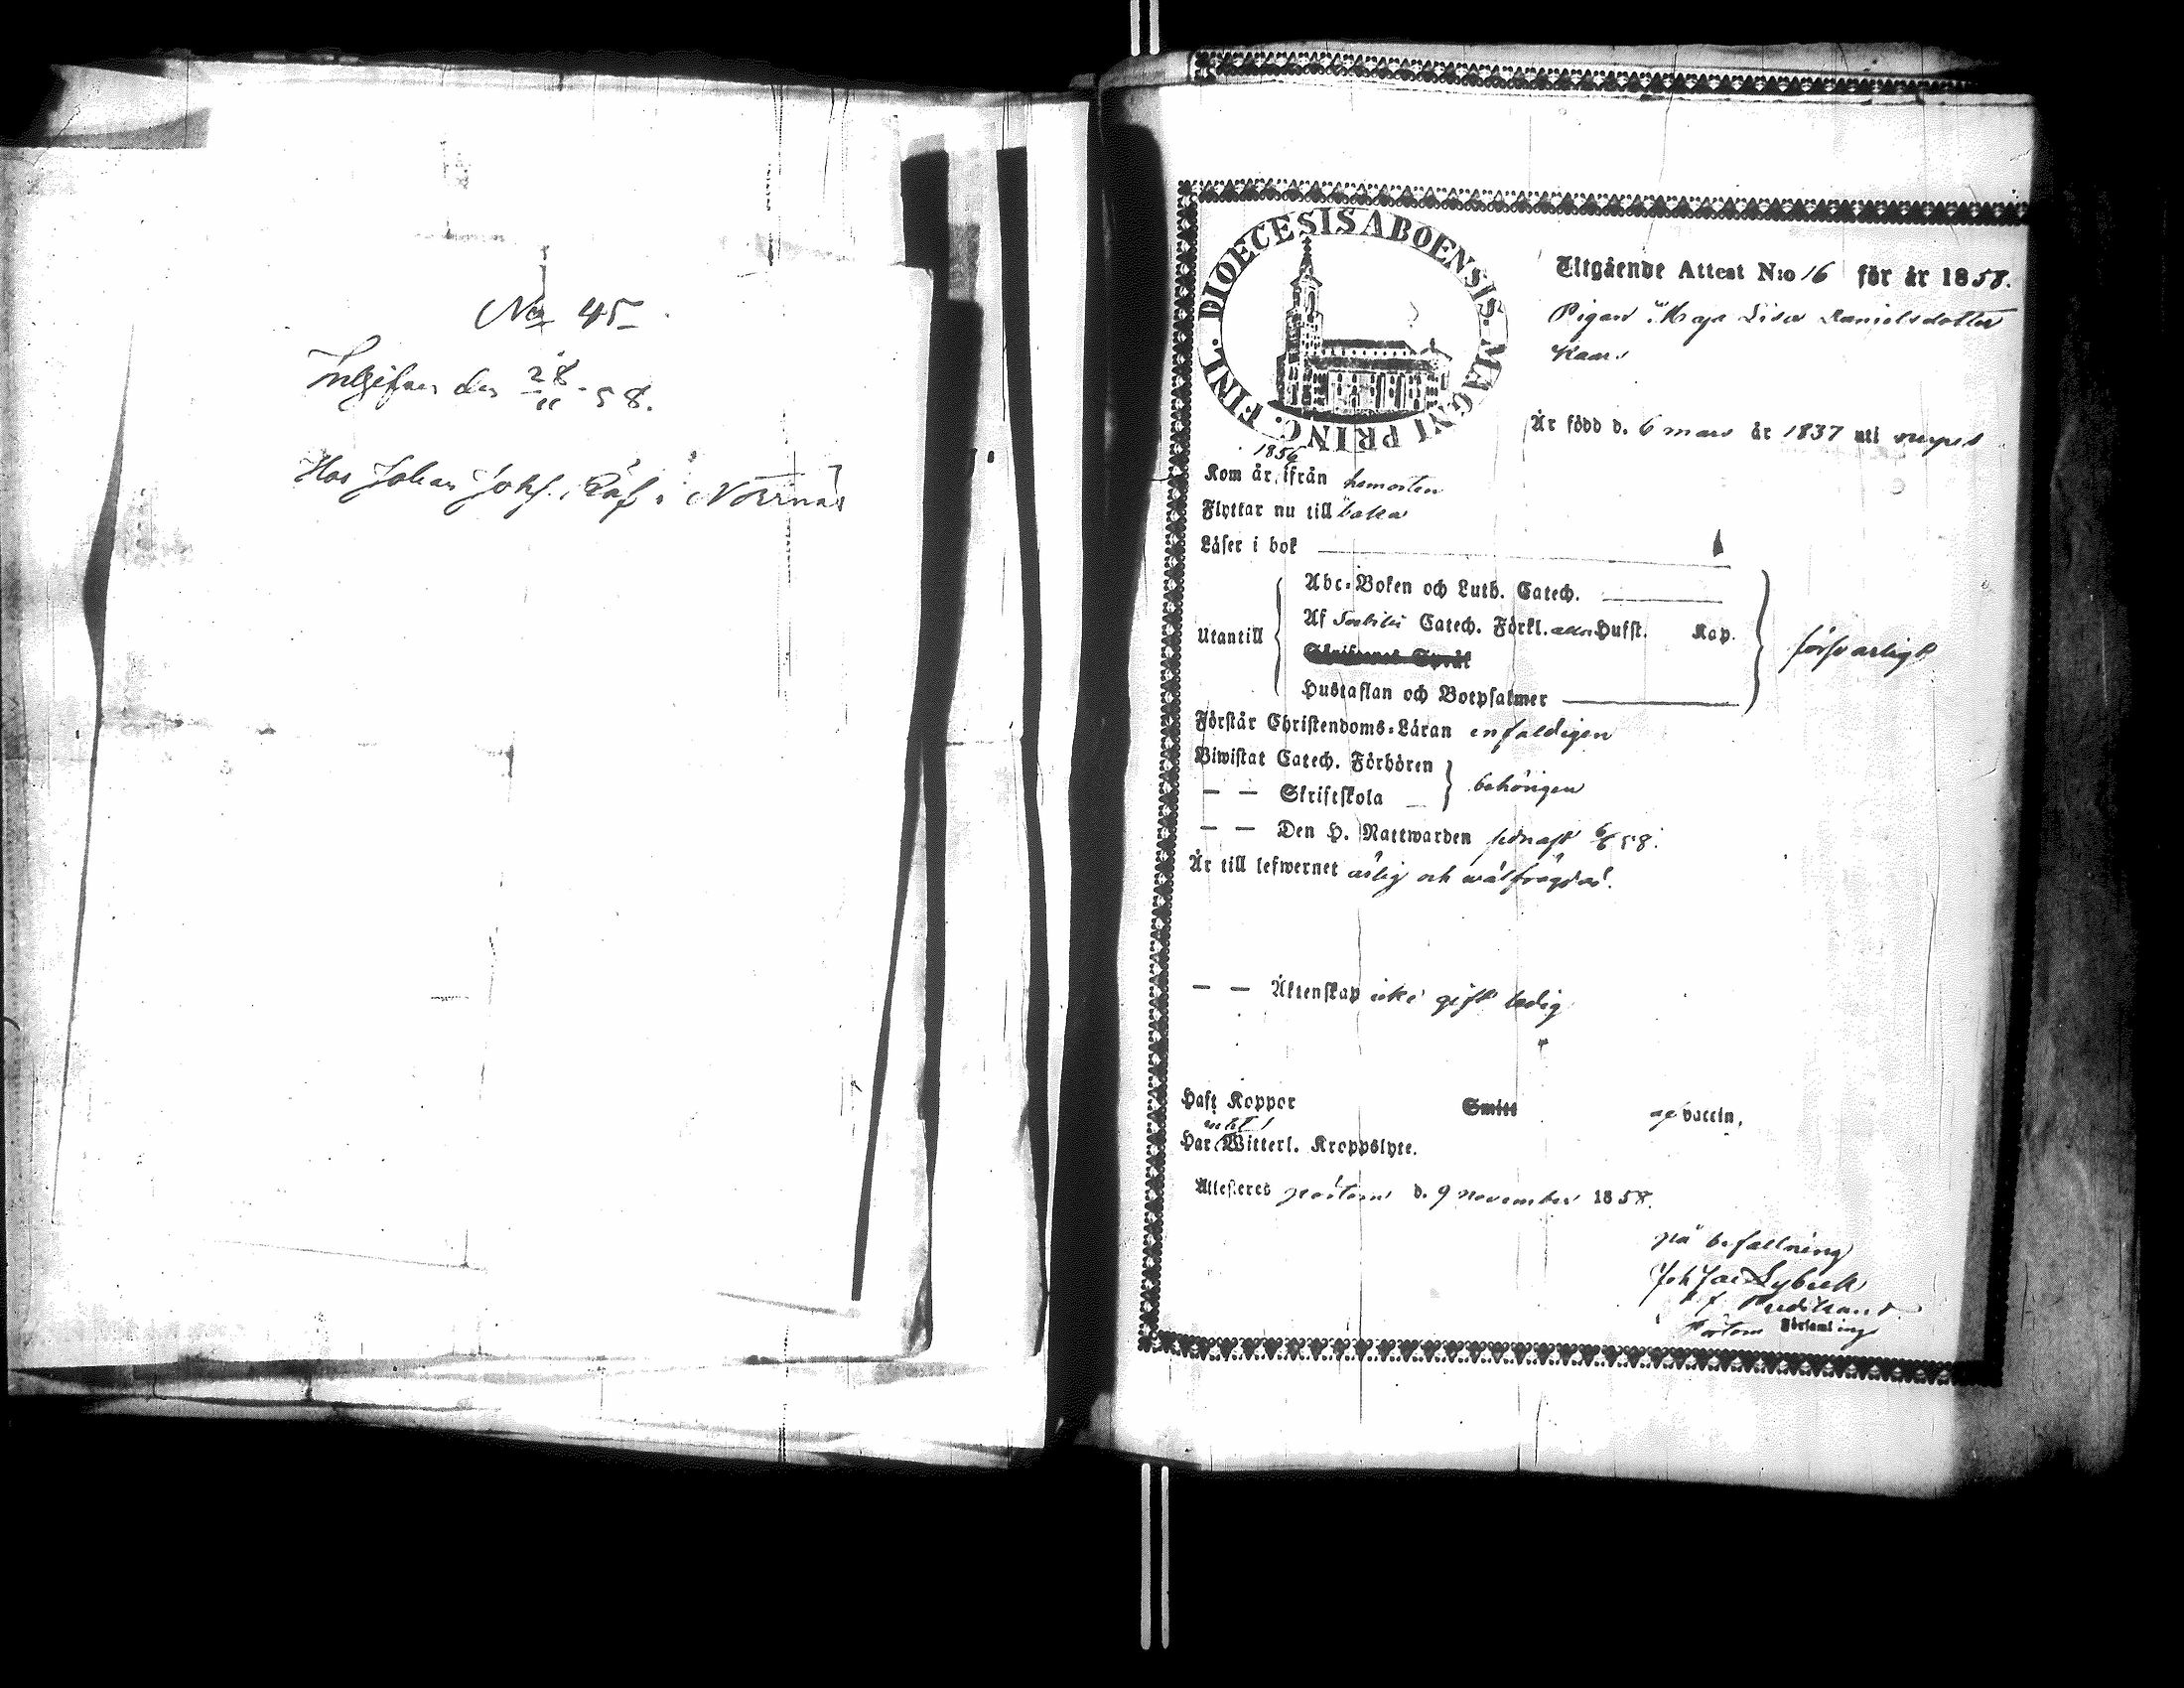 No 45
Inlefver den 28/11 - 58.
Hos Johan Johs. Räf i Norrnäs
DIOECESIS ABOENSIS. MAGNI PRINC. FINL.
Utgående Attest N:o 16 för år 1858.
Pigan Maja Lisa Danielsdotter
Är född d. 6 mars år 1837 uti
1856
Kom år, ifrån hemorten
Flyttar nu till baka
Läser i bok
Abc-Boken och Luth. Catech.
Utantill
Af Catech. Förkl. Hufst. Kap.
Skriftenes Språk
försvarligt
Hustaflan och Botpsalmer
Förstår Christendoms-Läran enfaldigen
Biwistat Catech. Förhören
— — Skriftskola
behörigen
— — Den H. Nattwarden sednast 6/6 58.
Är till lefwernet ärlig och wälfrägdad.
— — Äktenskap icke gift ledig
Haft Koppor Smitt af vaccin.
Har Witterl. Kroppslyte.
Attesteres Pörtom d. 9 november 1858.
på befallning
Joh Jac Lybeck
Pörtom Församling